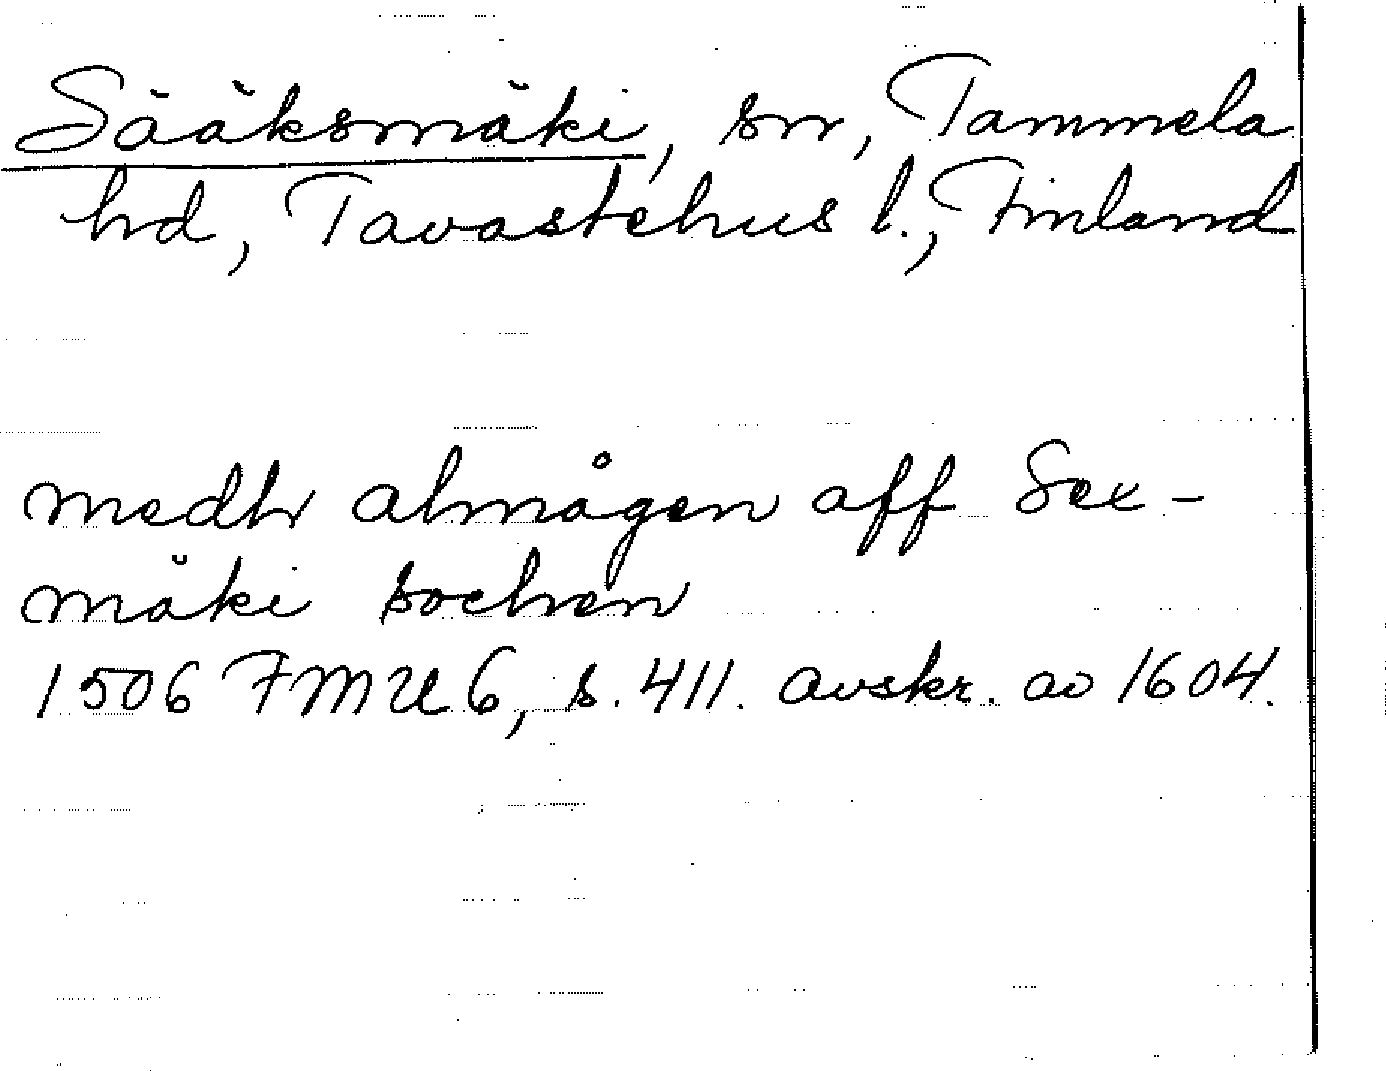 Sääksmäki, sn, Tammela
hd, Tavastehus l., Finland
medh almågen aff Sex-
mäki sochen
1506 FMU 6, s. 411. avskr. av 1604.